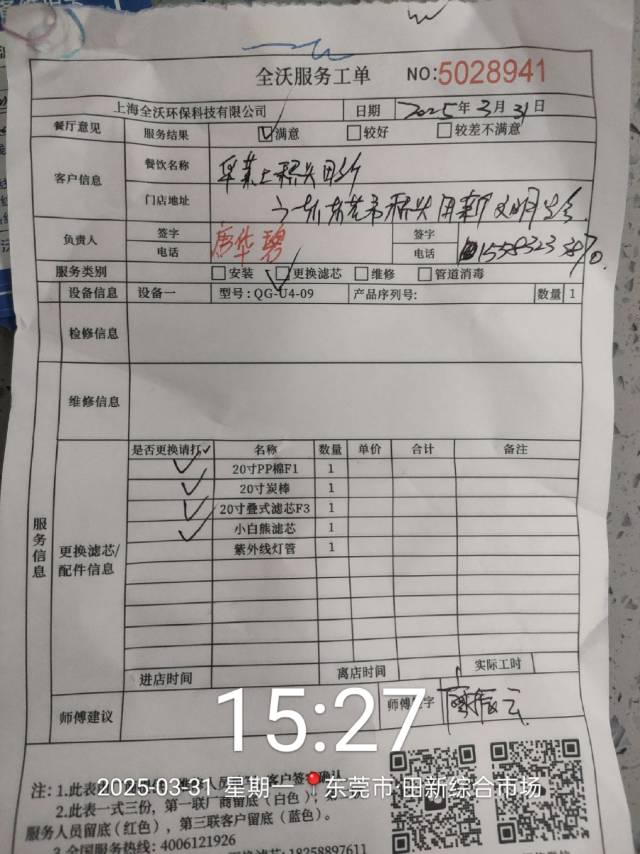 全沃服务工单 NO:5028941
上海全沃环保科技有限公司 日期 2025年3月31日
餐厅意见 服务结果 ☑满意 □较好 □较差不满意
客户信息 餐饮名称
门店地址
负责人 签字 唐华碧 签字
电话 电话
服务类别 □安装 ☑更换滤芯 □维修 □管道消毒
设备信息 设备一 型号:QG-U4-09 产品序列号: 数量 1
检修信息
维修信息
服务信息
更换滤芯/配件信息
是否更换请打✓ 名称 数量 单价 合计 备注
✓ 20寸PP棉F1 1
✓ 20寸炭棒 1
✓ 20寸叠式滤芯F3 1
✓ 小白熊滤芯 1
紫外线灯管 1
进店时间 离店时间 实际工时
师傅建议 师傅签字
15:27
2025-03-31 星期一 东莞市·田新综合市场
注:1.此表
2.此表一式三份,第一联厂商留底(白色),第
服务人员留底(红色),第三联客户留底(蓝色)。
3.全国服务热线:4006121926
18258897611